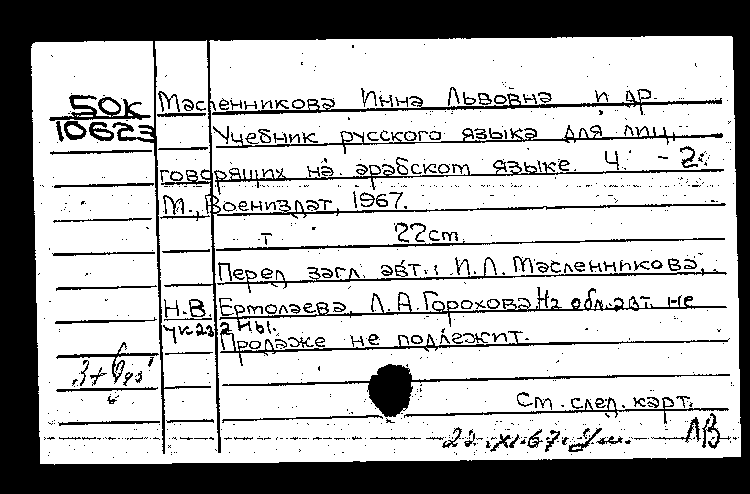 50к Масленникова Инна Львовна и др.
10623 Учебник русского языка для лиц,
говорящих на арабском языке. Ч. - 2
М., Воениздат, 1967.
т 22см.
Перед загл. авт.: И.Л. Масленникова,
Н.В. Ермолаева, Л.А. Горохова. На обл. авт. не
указаны.
Продаже не подлежит.
См. след. карт.
22.XI.67. ЛВ